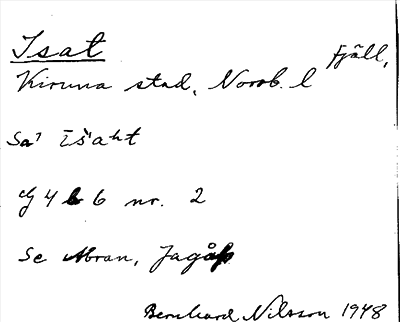 Isat fjäll,
Kiruna stad, Norrb. l
Sa' īšaht
4 b 6 nr. 2
Se Abran,
Bernhard Nilsson 1948